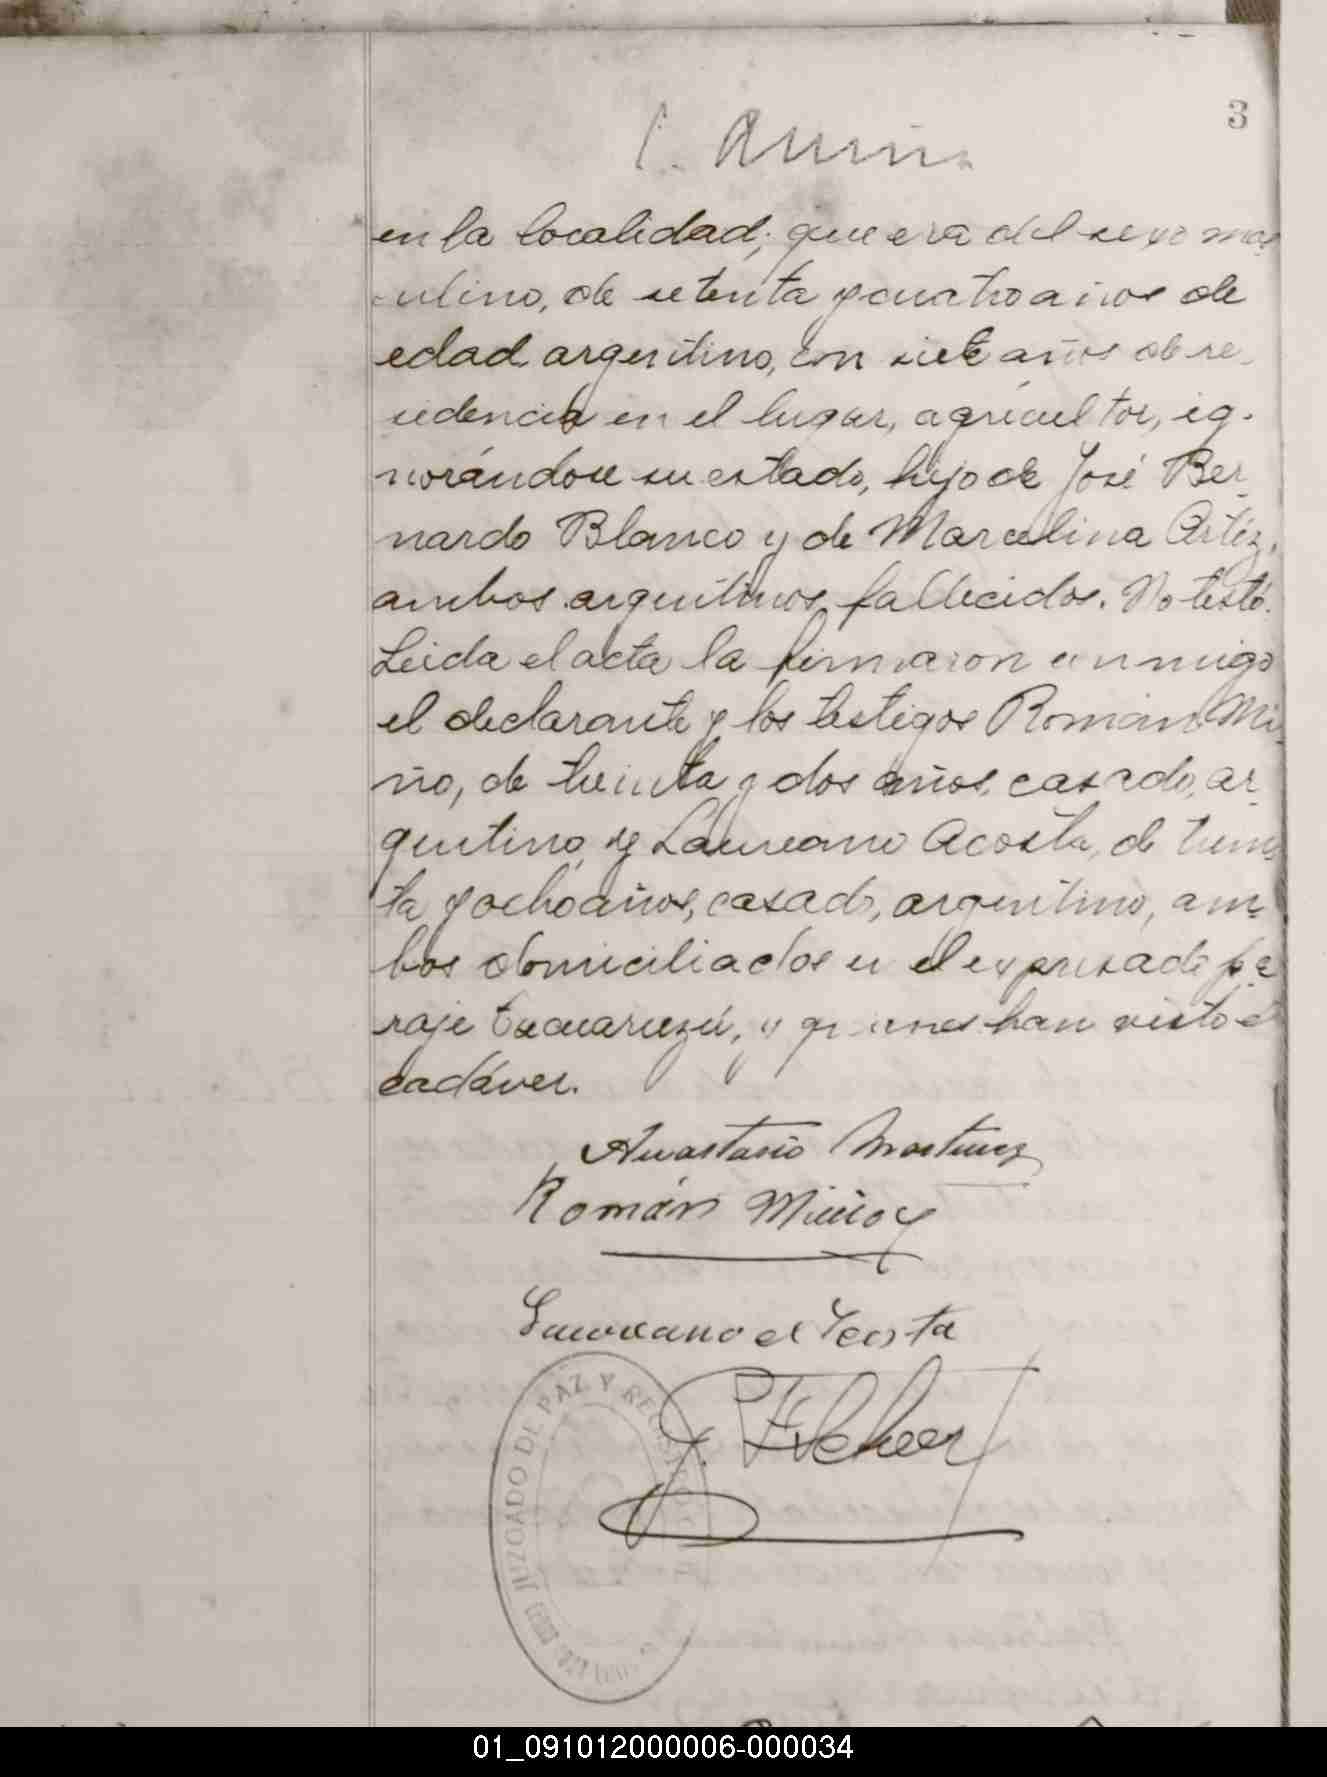 3
en la localidad; que era del sexo mas
culino, de setenta y cuatro años de
edad argentino, con siete años de re-
sidencia en el lugar, agricultor, ig-
norándose su estado, hijo de José Ber-
nardo Blanco y de Marcelina Artiz,
ambos argentinos, fallecidos. No testó.
Leida el acta la firmaron conmigo
el declarante y los testigos Román Mi-
ño, de treinta y dos años, casado, ar-
gentino, y Laureano Acosta, de trein
ta y ocho años, casado, argentino, am-
bos domiciliados en el expresado pa
raje y quienes han visto el
cadáver.
Anastasio Martinez
Román Miño
Laureano Acosta
JUZGADO DE PAZ Y REGISTRO
01_091012000006-000034